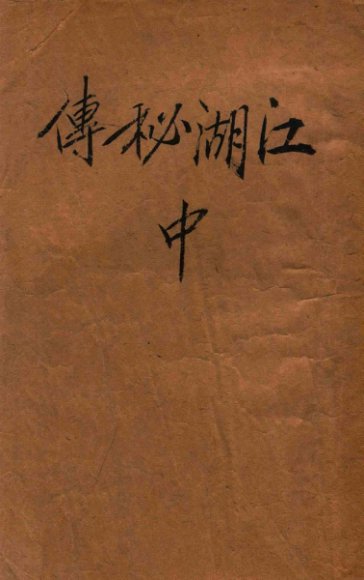 江湖秘傳
中